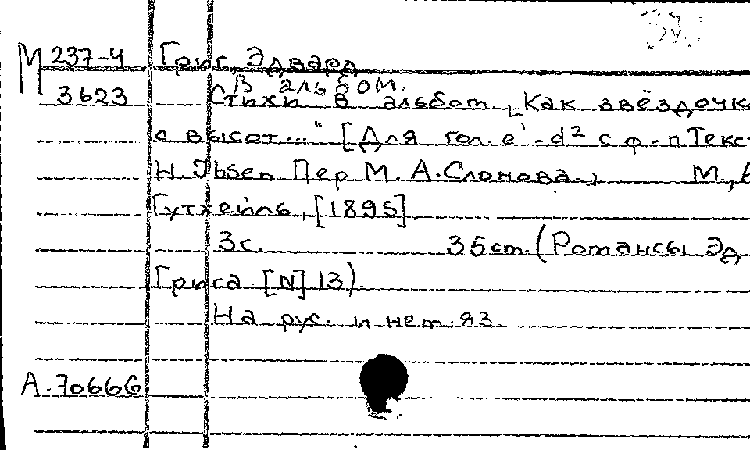 М 237-4 Григ, Эдвард
В альбом.
3623 Стихи в альбом „Как звёздочка
с высот..." [Для гол. e¹-d² с ф.-п. Текст
H. Ibsen Пер М. А. Слонова., М., 
Гутхейль, [1895]
3с. 35 cm. (Романсы Эд
Грига [N] 13)
На рус. и нем. яз.
А. 70666